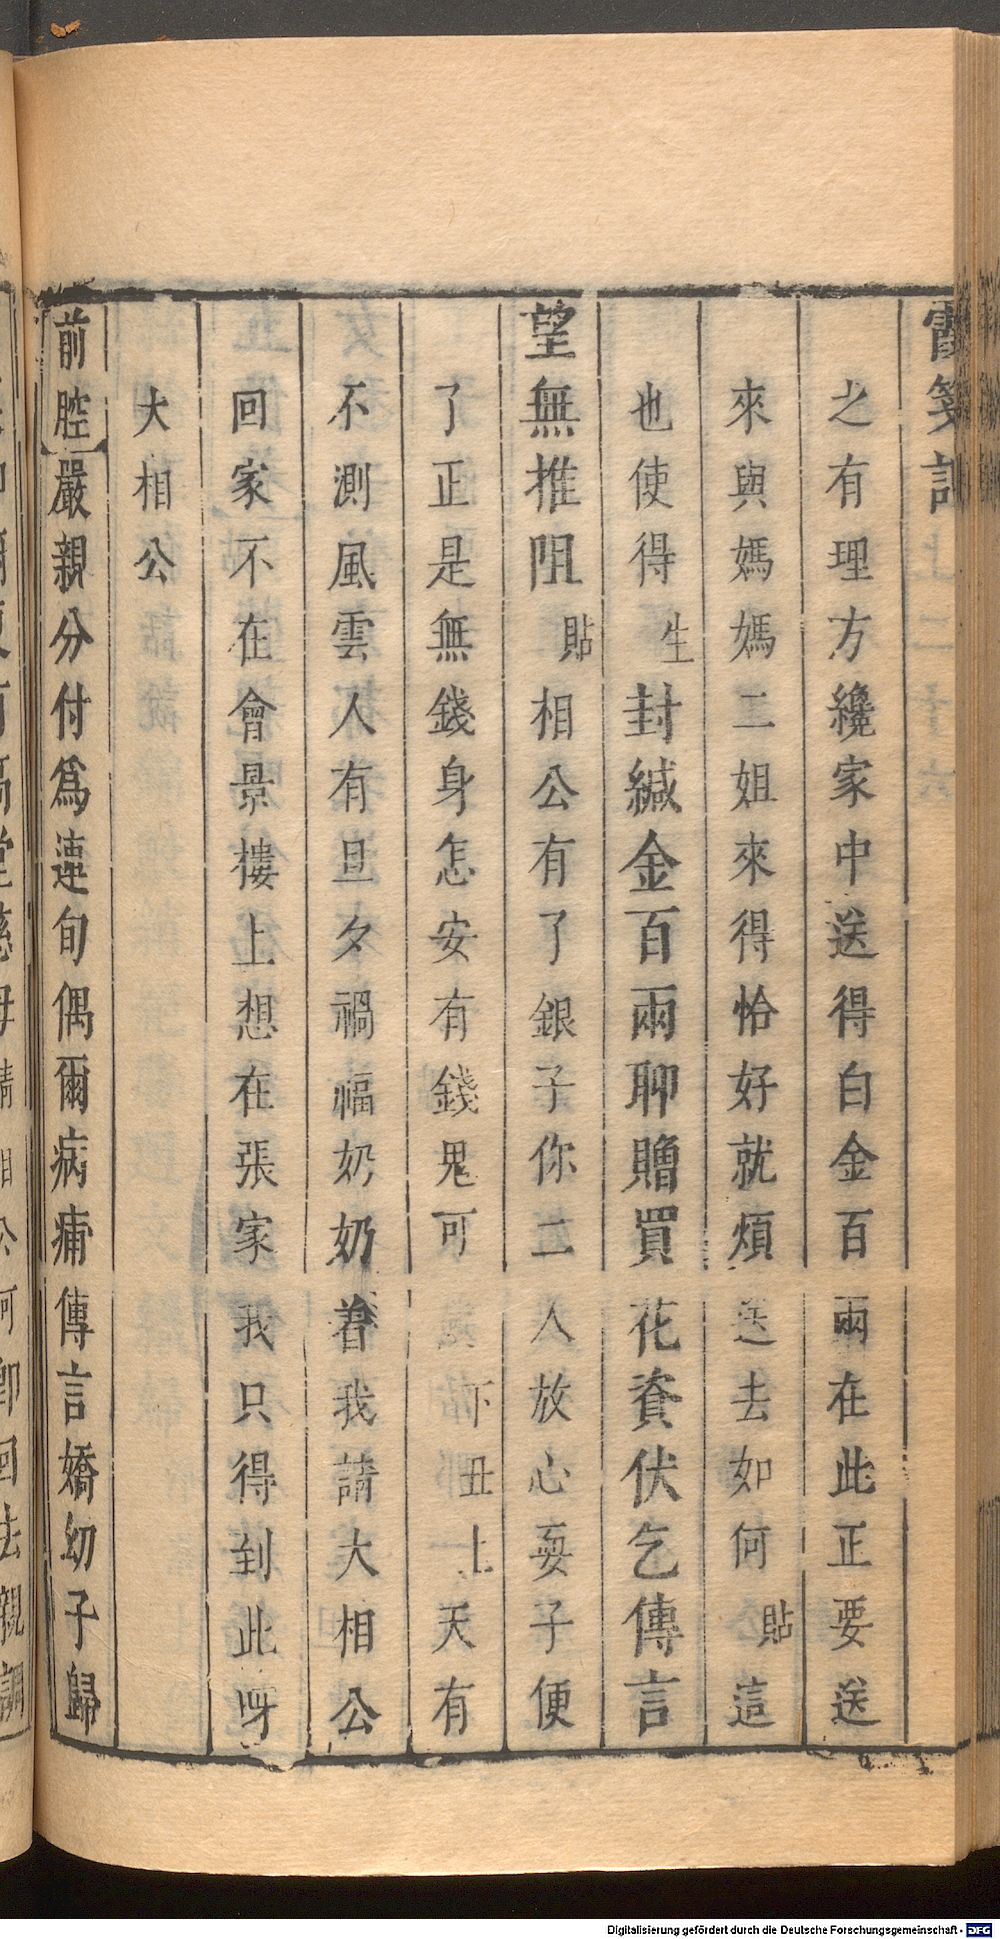 霞箋記
之有理方纔家中送得白金百兩在此正要送
來與媽媽二姐來得恰好就煩送去如何貼這
也使得生封緘金百兩聊贈買花資伏乞傳言
望無推阻貼相公有了銀子你二人放心耍子便
了正是無錢身怎安有錢鬼可下丑上天有
不測風雲人有旦夕禍福奶奶着我請大相公
回家不在會景樓上想在張家我只得到此呀
大相公
前腔嚴親分付爲連旬偶爾病痡傳言嬌幼子歸
Digitalisierung gefördert durch die Deutsche Forschungsgemeinschaft - DFG